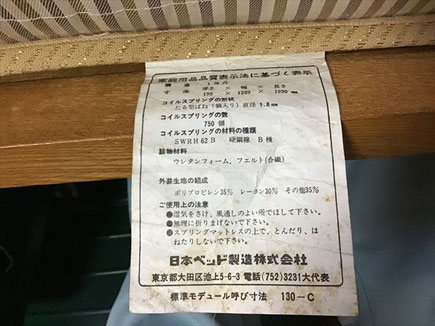 家庭用品品質表示法に基づく表示
構造 1
厚さ × 幅 × 長さ
寸法 190 × 1220 × 1950
コイルスプリングの形状
たる型ばね(袋入り)直径1.8
コイルスプリングの数
750個
コイルスプリングの材料の種類
SWRH62B 硬鋼線 B種
詰物材料
ウレタンフォーム、フエルト(合繊)
外装生地の組成
ポリプロピレン35% レーヨン30% その他35%
ご使用上の注意
●湿気をさけ、風通しのよい所でほして下さい。
●無理に折りまげないで下さい。
●スプリングマットレスの上で、とんだり、は
ねたりしないで下さい。
日本ベッド製造株式会社
東京都大田区池上5-6-3 電話(752)3231大代表
標準モデュール呼び寸法 130-C